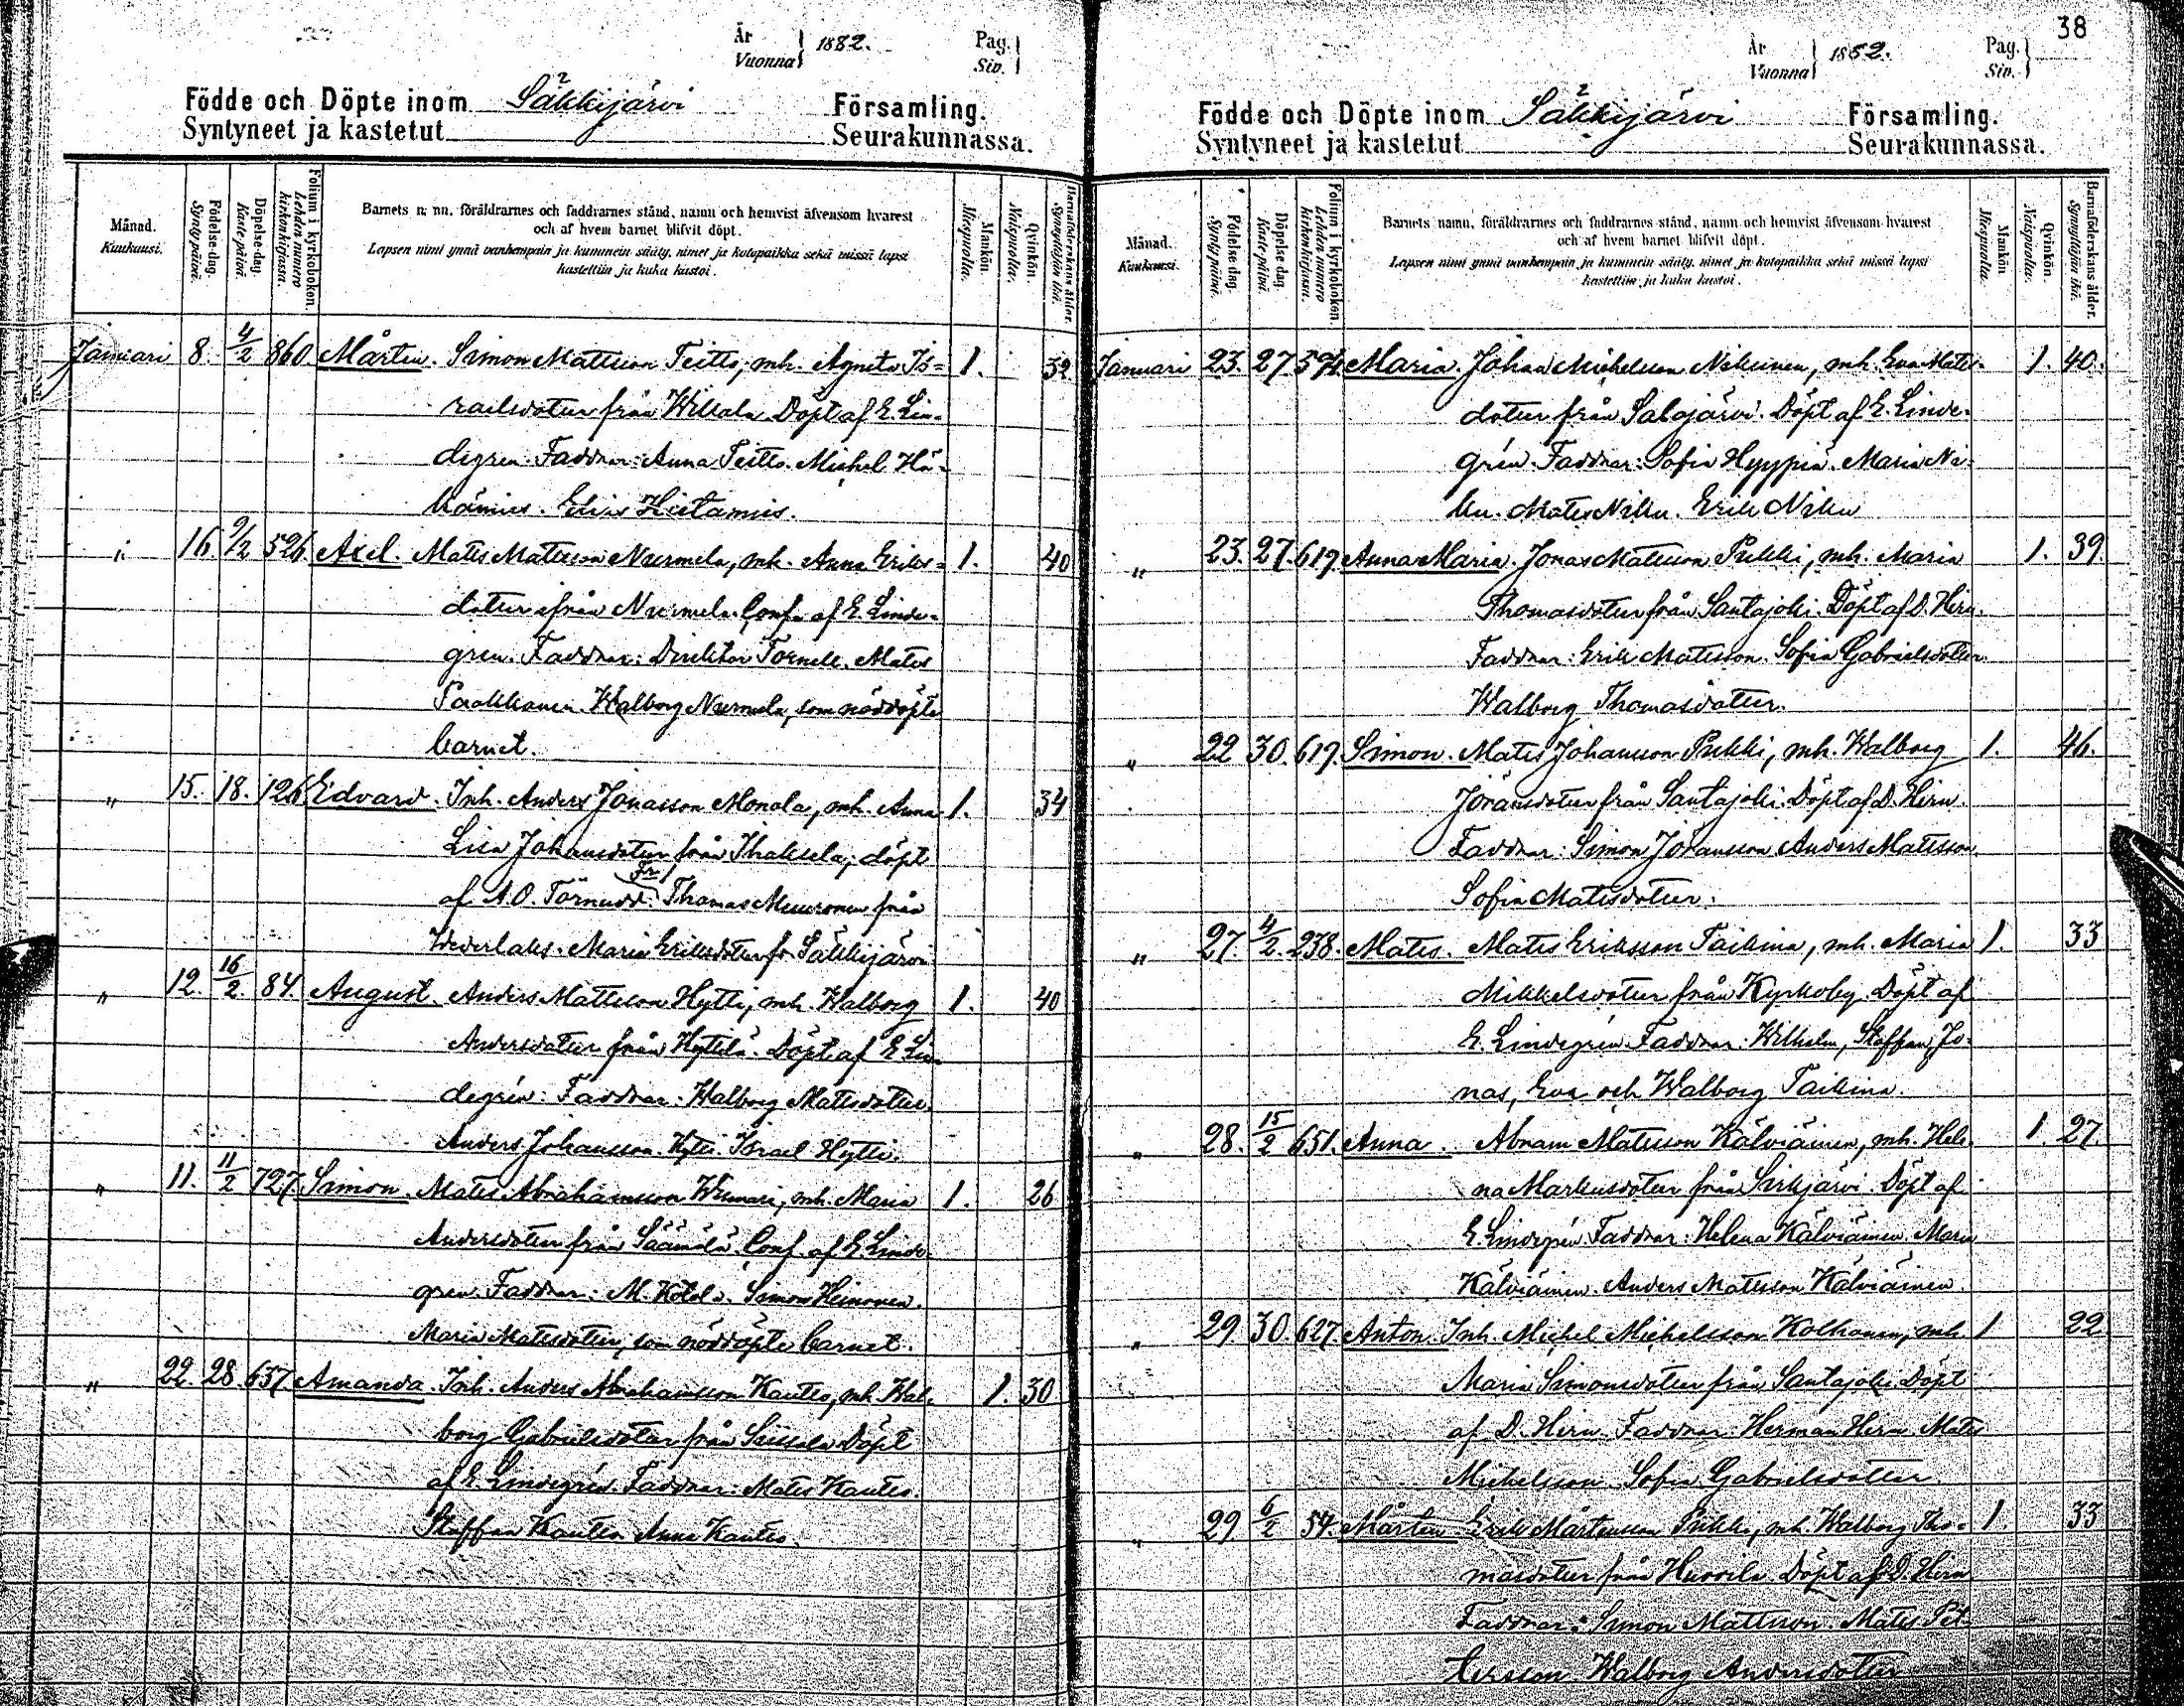 År
Vuonna
1882.
Pag.
Siv.
Födde och Döpte inom Säkkijärvi Församling.
Syntyneet ja kastetut Seurakunnassa.
Månad.
Kuukausi.
Födelse-dag.
Syntypäivä.
Döpelse-dag.
Kastepäivä.
Folium i kyrkoboken.
Lehden numero kirkonkirjassa.
Barnets n: nn, föräldrarnes och faddrarnes stånd, namn och hemvist äfvensom hvarest
och af hvem barnet blifvit döpt.
Lapsen nimi ynnä vanhempain ja kummein sääty, nimet ja kotopaikka sekä missä lapsi
kastettiin ja kuka kastoi.
Mankön.
Miespuolia.
Qvinkön.
Naispuolia.
Barnaföderskans ålder.
Synnyttäjän ikä.
Januari 8. 4/2 860. Mårten. Simon Mattsson Teitto, mh. Agneta Is= 1. 32.
raelsdotter från Willala Döpt af E. Lin-
degren. Faddrar: Anna Teitto. Michel Hä-
kämies. Elias Hietamies.
" 16. 9/2 526. Axel. Mats Matsson Nurmela, mh. Anna Eriks= 1. 40
dotter ifrån Nurmela. Conf. af E. Linde-
gren. Faddrar: Direktor Fornell. Mats
Paakkanen. Walborg Nurmela, som nöddöpte
barnet.
" 15. 18. 126 Edvard. Inh. Anders Jonasson Monola, mh. Anna 1. 34
Lisa Johansdotter från Ihaksela, döpt
af A.O. Törnudd. Thomas Muuronen från
Wederlaks. Maria Eriksdotter fr. Säkkijärvi
" 12. 16/2 84. August. Anders Mattsson Hytti, mh. Walborg 1. 40
Andersdotter från Hyttilä. Döpt af E. Lin-
degrén. Faddrar: Walborg Matsdotter.
Anders Johansson Hytti. Israel Hytti.
" 11. 11/2 727. Simon. Mats Abrahamsson Wiinari, mh. Maria 1. 26
Andersdotter från Säämälä. Conf. af E. Linde-
gren. Faddrar: M. Simon Heinonen.
Maria Matsdotter, som nöddöpte barnet.
" 22. 28. 657. Amanda. Inh. Anders Abrahamsson Kauto, mh. Wal- 1. 30
borg Gabrielsdotter från Döpt
af E. Lindegrén. Faddrar: Mats Kauto.
Staffan Kauto. Anna Kauto.
38
År
Vuonna
1882.
Pag.
Siv.
Födde och Döpte inom Säkkijärvi Församling.
Syntyneet ja kastetut Seurakunnassa.
Månad.
Kuukausi.
Födelse-dag.
Syntypäivä.
Döpelse dag.
Kastepäivä.
Folium i kyrkoboken.
Lehden numero kirkonkirjassa.
Barnets namn, föräldrarnes och faddrarnes stånd, namn och hemvist äfvensom hvarest
och af hvem barnet blifvit döpt.
Lapsen nimi ynnä vanhempain ja kummein sääty, nimet ja kotopaikka sekä missä lapsi
kastettiin ja kuka kastoi.
Mankön.
Miespuolia.
Qvinkön.
Naispuolia.
Barnaföderskans ålder.
Synnyttäjän ikä.
Januari 23. 27. Maria. Johan Michelsson Nikunen, mh. Eva Mats- 1. 40.
dotter från Salajärvi. Döpt af E. Linde-
grén. Faddrar: Sofia Hyyppiä. Maria Ni-
ku. Mats Niku. Erik Niku
" 23. 27. 619. Anna Maria. Jonas Matsson Pukki, mh. Maria 1. 39.
Thomasdotter från Santajoki. Döpt af D. Hirn.
Faddrar: Erik Matsson. Sofia Gabrielsdotter
Walborg Thomasdotter.
" 22 30. 619. Simon. Mats Johansson Pukki, mh. Walborg 1. 46.
Jöransdotter från Santajoki. Döpt af D. Hirn.
Faddrar: Simon Johansson. Anders Matsson.
Sofia Matsdotter.
" 27. 4/2. 238. Mats. Mats Eriksson Taikina, mh. Maria 1. 33
Mikkelsdotter från Kyrkoby. Döpt af
E. Lindegrén. Faddrar: Wilhelm, Staffan, Jo-
nas, Eva och Walborg Taikina.
" 28. 15/2 651. Anna. Abram Matsson Kälviäinen, mh. Hele- 1 27
na Markusdotter från Sirkjärvi. Döpt af
E. Lindegrén. Faddrar: Helena Kälviäinen. Maria
Kälviäinen. Anders Matsson Kälviäinen.
" 29 30. 627. Anton. Inh. Michel Michelsson Kolhonen, mh. 1 22
Maria Simonsdotter från Santajoki. Döpt
af D. Hirn. Faddrar: Herman Hirn. Mats
Michelsson. Sofia Gabrielsdotter
" 29 6/2 54. Mårten Erik Mårtensson Pukki, mh. Walborg Tho- 1. 33
masdotter från Hurvila. Döpt af D. Hirn
Faddrar: Simon Mattsson. Mats Pet-
tersson. Walborg Andersdotter